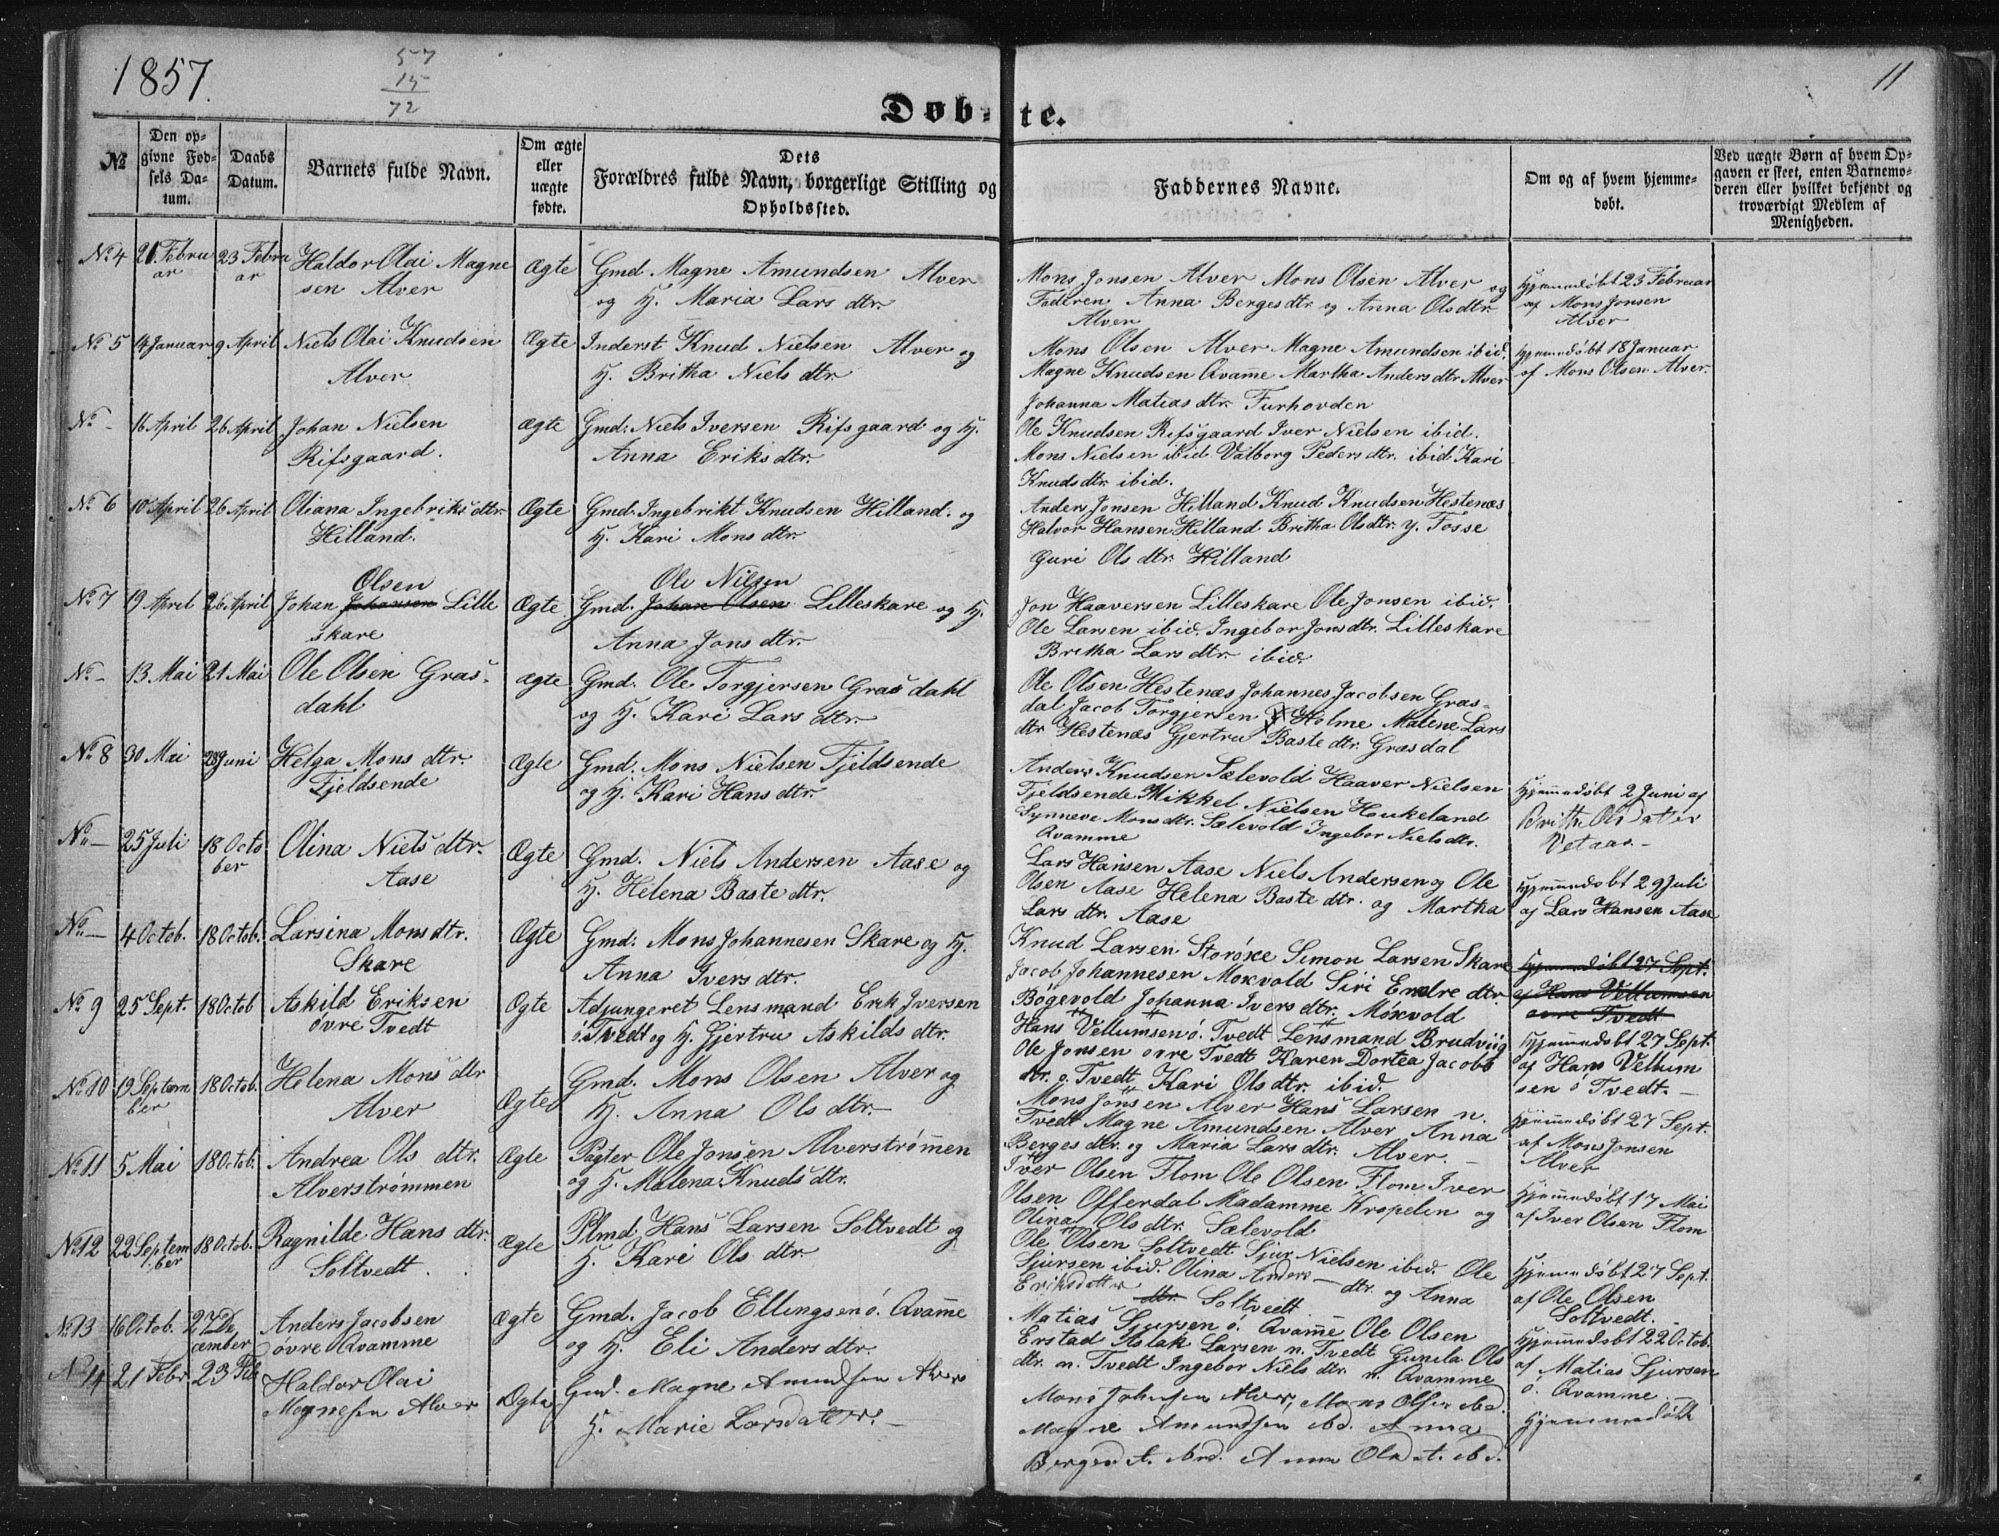 1857.
57
15
72
11
Døbte.
No
Den op-
givne Fød-
sels Da-
tum.
Daabs
Datum.
Barnets fulde Navn.
Om ægte
eller
uægte
fødte.
Dets
Forældres fulde Navn, borgerlige Stilling og
Opholdssted.
Faddernes Navne.
Om og af hvem hjemme-
døbt.
Ved uægte Børn af hvem Op-
gaven er skeet, enten Barnemo-
deren eller hvilket bekjendt og
troværdigt Medlem af
Menigheden.
No 4 21 Febru 23 Febru Haldor Olai Magne Ægte Gmd. Magne Amundsen Alver
ar ar sen Alver og H. Maria Lars dtr.
Mons Jonsen Alver Mons Olsen Alver og
Faderen Anna Berges dtr og Anna Ols dtr
Alver
Hjemmedøbt 23 Februar
af Mons Jonsen
Alver
No 5 14 Januar 9 April Niels Olai Knudsen Ægte Inderst Knud Nielsen Alver og
Alver H. Britha Niels dtr.
Mons Olsen Alver Magne Amundsen ibid.
Magne Knudsen Qvamme Martha Anders dtr Alver
Johanna Matias dtr. Furhovden
Hjemmedøbt 18 Januar
af Mons Olsen Alver.
No - 16 April 26 April Johan Nielsen ægte Gmd. Niels Iversen Rifsgaard og H.
Rifsgaard. Anna Eriks dtr.
Ole Knudsen Rifsgaard Iver Nielsen ibid.
Mons Nielsen ibid Valborg Peders dtr. ibid Kari
Knuds dtr ibid.
No 6 10 April 26 April Oliana Ingebriks dtr. Ægte Gmd. Ingebrikt Knudsen Hilland. og
Hilland. H. Kari Mons dtr.
Anders Jonsen Hilland Knud Knudsen Hestenæs
Halvor Hansen Hilland Britha Ols dtr. y. Fosse
Guri Ols dtr. Hilland
Olsen Ole Nilsen
No 7 19 April 26 April Johan Johansen Lille Ægte Gmd. Johan Olsen Lilleskare og H.
skare Anna Jons dtr.
Jon Haaversen Lilleskare Ole Jonsen ibid.
Ole Larsen ibid. Ingebor Jons dtr. Lilleskare
Britha Lars dtr. ibid.
No - 13 Mai 21 Mai Ole Olsen Græs- ægte Gmd. Ole Torgjersen Græsdahl
dahl og H. Kari Lars dtr.
Ole Olsen Hestenæs Johannes Jacobsen Græs-
dal Jacob Torgjersen Holme Malene Lars
dtr Hestenæs Gjertru Baste dtr. Græsdal
No 8 30 Mai 28 Juni Helga Mons dtr. Ægte Gmd. Mons Nielsen Fjeldsende
Fjeldsende og H. Kari Hans dtr.
Anders Knudsen Sælevold Haaver Nielsen
Fjeldsende Mikkel Nielsen Houkeland
Synneve Mons dtr. Sælevold Ingebor Niels dtr.
Qvamme
Hjemmedøbt 2 Juni af
Brithe Olsdatter
Vetaas -
No - 25 Juli 18 Octo Olina Niels dtr. Ægte Gmd. Niels Andersen Aase og
ber Aase H. Helena Baste dtr.
Lars Hansen Aase Niels Andersen og Ole
Olsen Aase Helena Baste dtr. og Martha
Lars dtr. Aase
Hjemmedøbt 29 Juli
af Lars Hansen Aase
No - 4 Octob. 18 Octob. Larsina Mons dtr. Ægte Gmd. Mons Johannesen Skare og H.
Skare Anna Ivers dtr.
Knud Larsen Storøxe Simon Larsen Skare
Jacob Johannesen Moxvold Siri Endre dtr
Bøgevold Johanna Ivers dtr. Moxvold
Hjemmedøbt 27 Sept.
af Hans Vellumsen
øvre Tvedt
No 9 25 Sept. 18 Octob Askild Eriksen Ogte Adjungeret Lensmand Erik Iversen
øvre Tvedt ö. Tvedt og H. Gjertru Askilds dtr.
Hans Vellumsen ö. Tvedt Lensmand Brudviig
Ole Jonsen øvre Tvedt Karen Dortea Jacobs
dtr. o. Tvedt Kari Ols dtr. ibid.
Hjemmedøbt 27 Sept.
af Hans Vellum
sen ö Tvedt.
No 10 19 Septem 18 Octob. Helena Mons dtr Ægte Gmd. Mons Olsen Alver og
ber Alver H. Anna Ols dtr.
Mons Jonsen Alver Hans Larsen n.
Tvedt Magne Amundsen Alver Anna
Berges dtr. og Maria Lars dtr. Alver.
Hjemmedøbt 27 Sept.
af Mons Jonsen
Alver
No 11 5 Mai 18 Octob. Andrea Ols dtr. Ægte Pagter Ole Jonsen Alverstrømmen
Alverstrømmen og H. Malena Knuds dtr.
Iver Olsen Flom Ole Olsen Flom Iver
Olsen Offerdal Madamme Kropelin og
Olina Ols dtr. Sælevold
Hjemmedøbt 17 Mai
af Iver Olsen Flom
No 12 22 Septem 18 Octob. Ragnilde Hans dtr. Ægte Plmd. Hans Larsen Soltvedt og
ber Soltvedt H. Kari Ols dtr
Ole Olsen Soltvedt Sjur Nielsen ibid. Ole
Sjursen ibid. Olina Anders dtr. og Anna
Eriksdatter dtr. Soltvedt
Hjemmedøbt 27 Sept.
af Ole Olsen
Soltvedt.
No 13 16 Octob. 27 De Anders Jacobsen Ægte Gmd. Jacob Ellingsen ö. Qvamme
cember øvre Qvamme og H. Eli Anders dtr.
Matias Sjursen ö. Qvamme Ole Olsen
Erstad Aslak Larsen n. Tvedt Gunila Ols
dtr. n. Tvedt Ingebor Niels dtr. n. Qvamme
Hjemmedøbt 22 Octob.
af Matias Sjursen
ö. Qvamme
No 14 21 Febr 23 Feb Haldor Olai Ogte Gmd. Magne Amundsen Alver
Magnesen Alver H. Marie Larsdatter.
Mons Johnsen Alver, Mons Olsen ibd.
Magne Amundsen ibd. Anna
Bergesd t. ibd. Anna Olsd t. ibd.
Hjemmedøbt